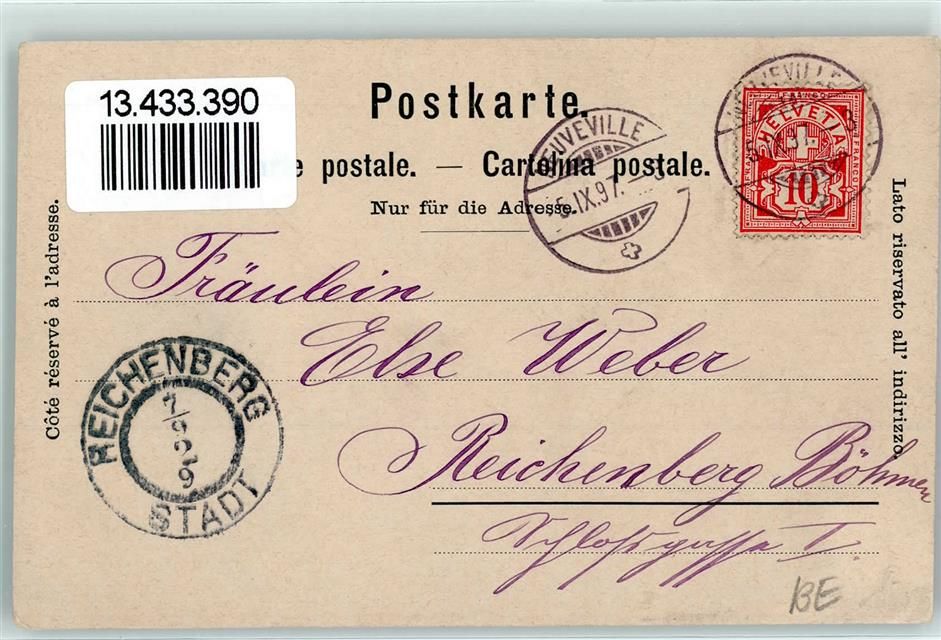 13.433.390
Postkarte.
e postale. — Cartolina postale.
Nur für die Adresse.
NEUVEVILLE
5.IX.97.
NEUVEVILLE
FRANCO
HELVETIA
FRANCO
10
Côté réservé à l'adresse.
Lato riservato all' indirizzo.
Fräulein
Else Weber
Reichenberg Böhmen
Schloßgasse I.
REICHENBERG
7/9
STADT
BE